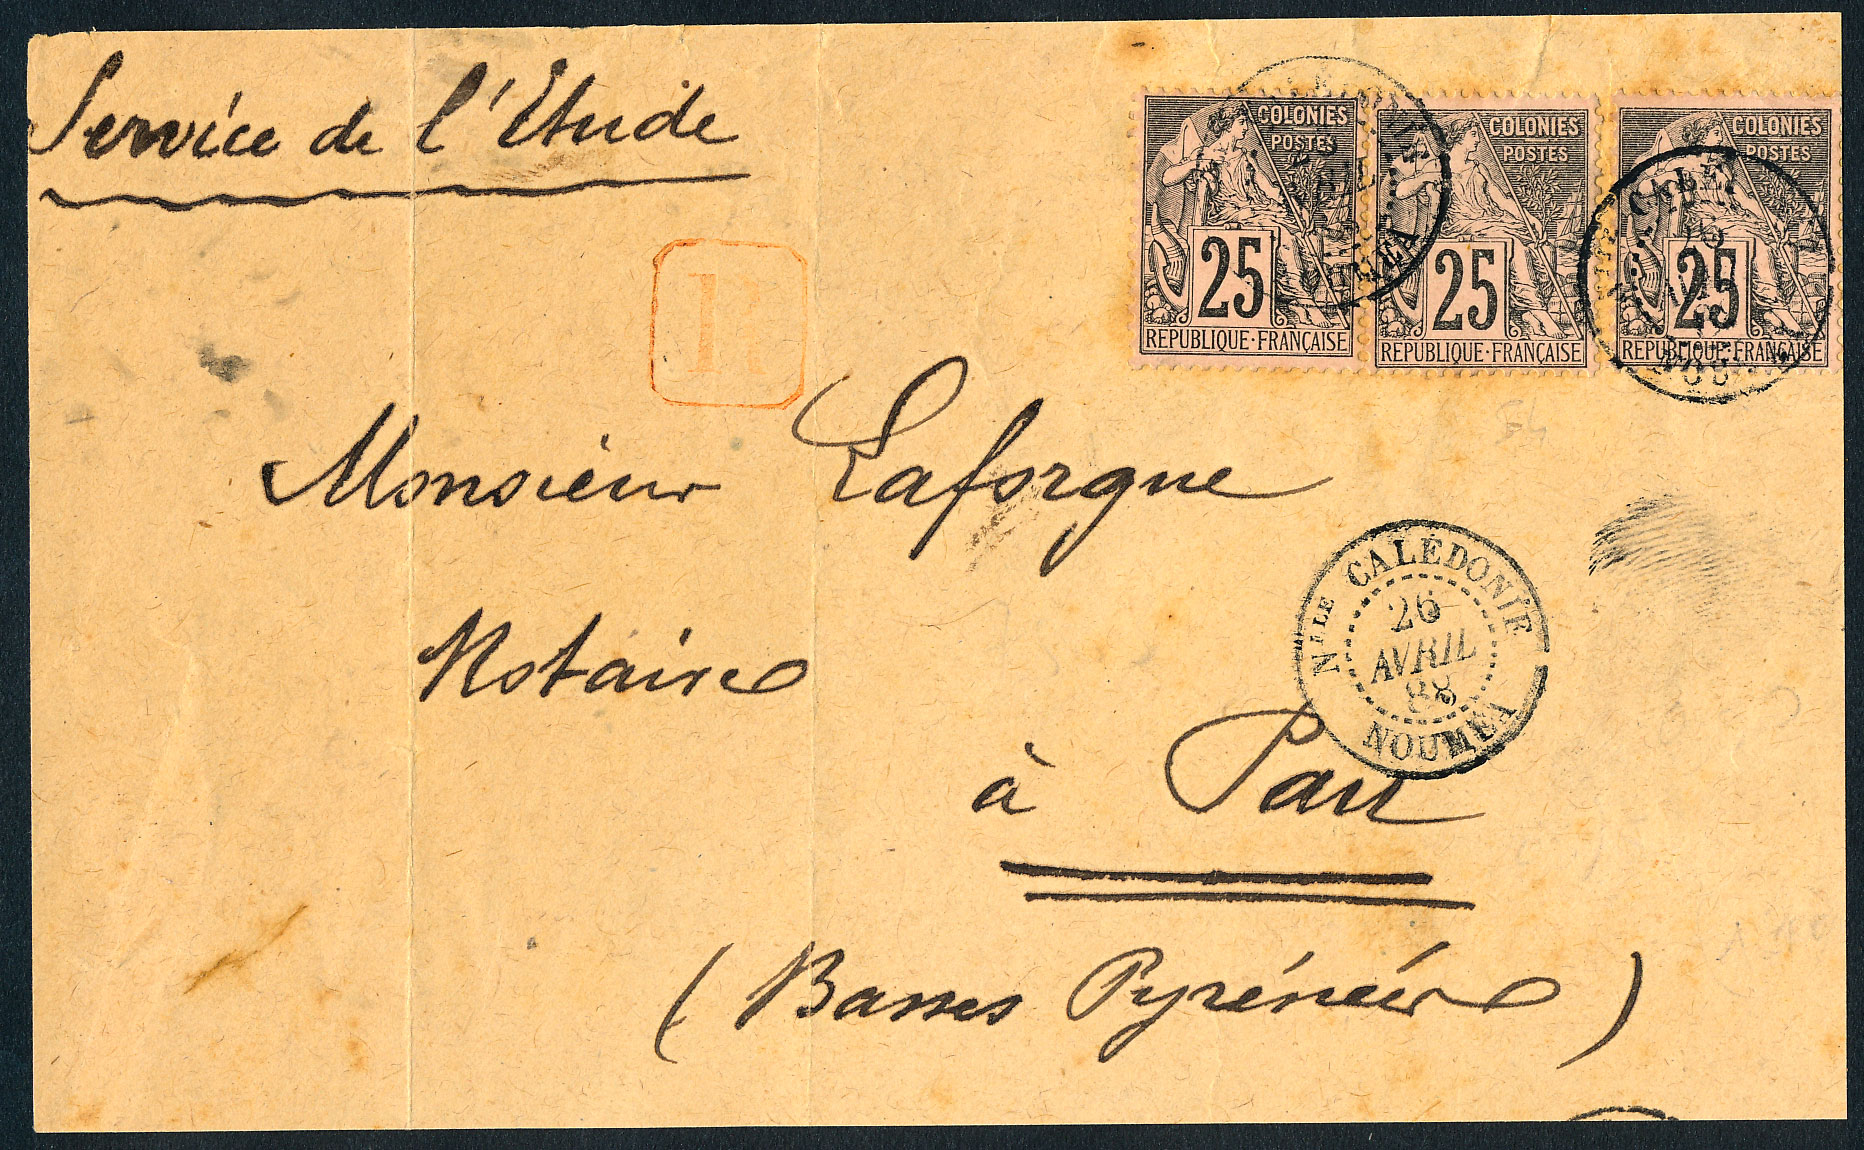 Service de l'Etude
COLONIES
POSTES
25
REPUBLIQUE·FRANÇAISE
COLONIES
POSTES
25
REPUBLIQUE·FRANÇAISE
COLONIES
POSTES
25
REPUBLIQUE·FRANÇAISE
R
Monsieur Laforgue
Notaire
NLLE CALÉDONIE
26
AVRIL
88
NOUMEA
à Pau
(Basses Pyrénées)